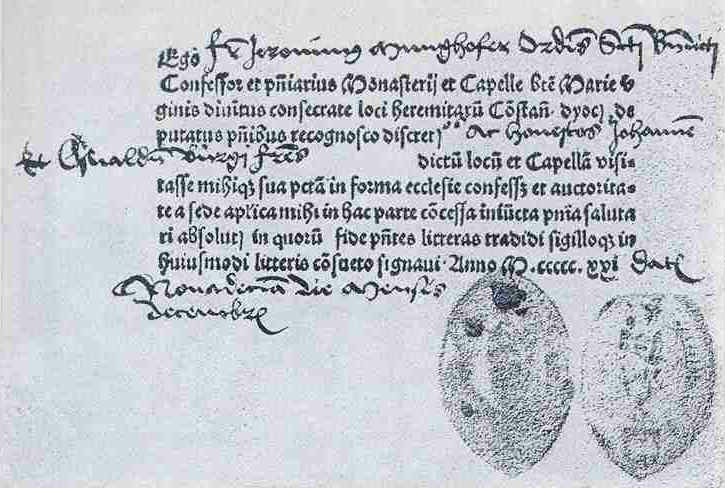 Ego fr Jeronimus Munghofer Ordis Scti Bndicti
Confessor et pñiarius Monasterij et Capelle bte Marie v
ginis diuinitus consecrate loci heremitarū Cōstañ. dyoc̄. de
putatus pñibus recognosco discret Ac honestos Johannē
Et Oswaldū Bürgi frēs dictū locū et Capellā visi-
tasse mihiqz sua pctā in forma ecclesie confessz et auctorita-
te a sede aplica mihi in hac parte cōcessa iniūcta pnīa saluta
ri absolut in quorū fide pñtes litteras tradidi sigilloqz in
huiusmodi litteris cōsueto signaui. Anno M.ccccc.xxi Dat
Nona die Mensis
decembr